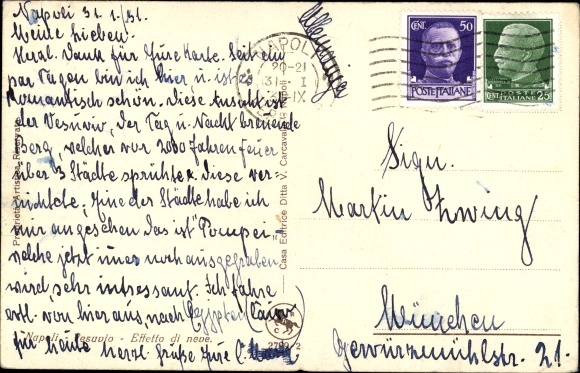 Napoli 31.1./31.
Meine Lieben!
Herzl. Dank für Eure Karte. Seit ein
par Tagen bin ich hier u. ist es
Romantisch schön. Diese Ansicht ist
der Vesuviv, der Tag u. Nacht brennende
Berg, welcher vor 2000 Jahren feuer
über 3 Städte sprühte u. diese ver-
nichtete, Eine der Städte habe ich
mir angesehen das ist "Pompei"
welche jetzt immer noch ausgegraben
wird, sehr intressant. Ich fahre
evtl. von hier aus nach Egypten (Cairo)
für heute herzl. Grüße Eure
Napoli - Vesuvio - Effetto di neve.
2799 2
Proprietà Artistica Riservata
Casa Editrice Ditta V. Carcavallo - Napoli
NAPOLI
20-21
31 I
IX
CENT. 50
POSTE ITALIANE
POSTE
CENT. ITALIANE 25
Sign.
Martin Zwing
München
Gewürzmühlstr. 21.